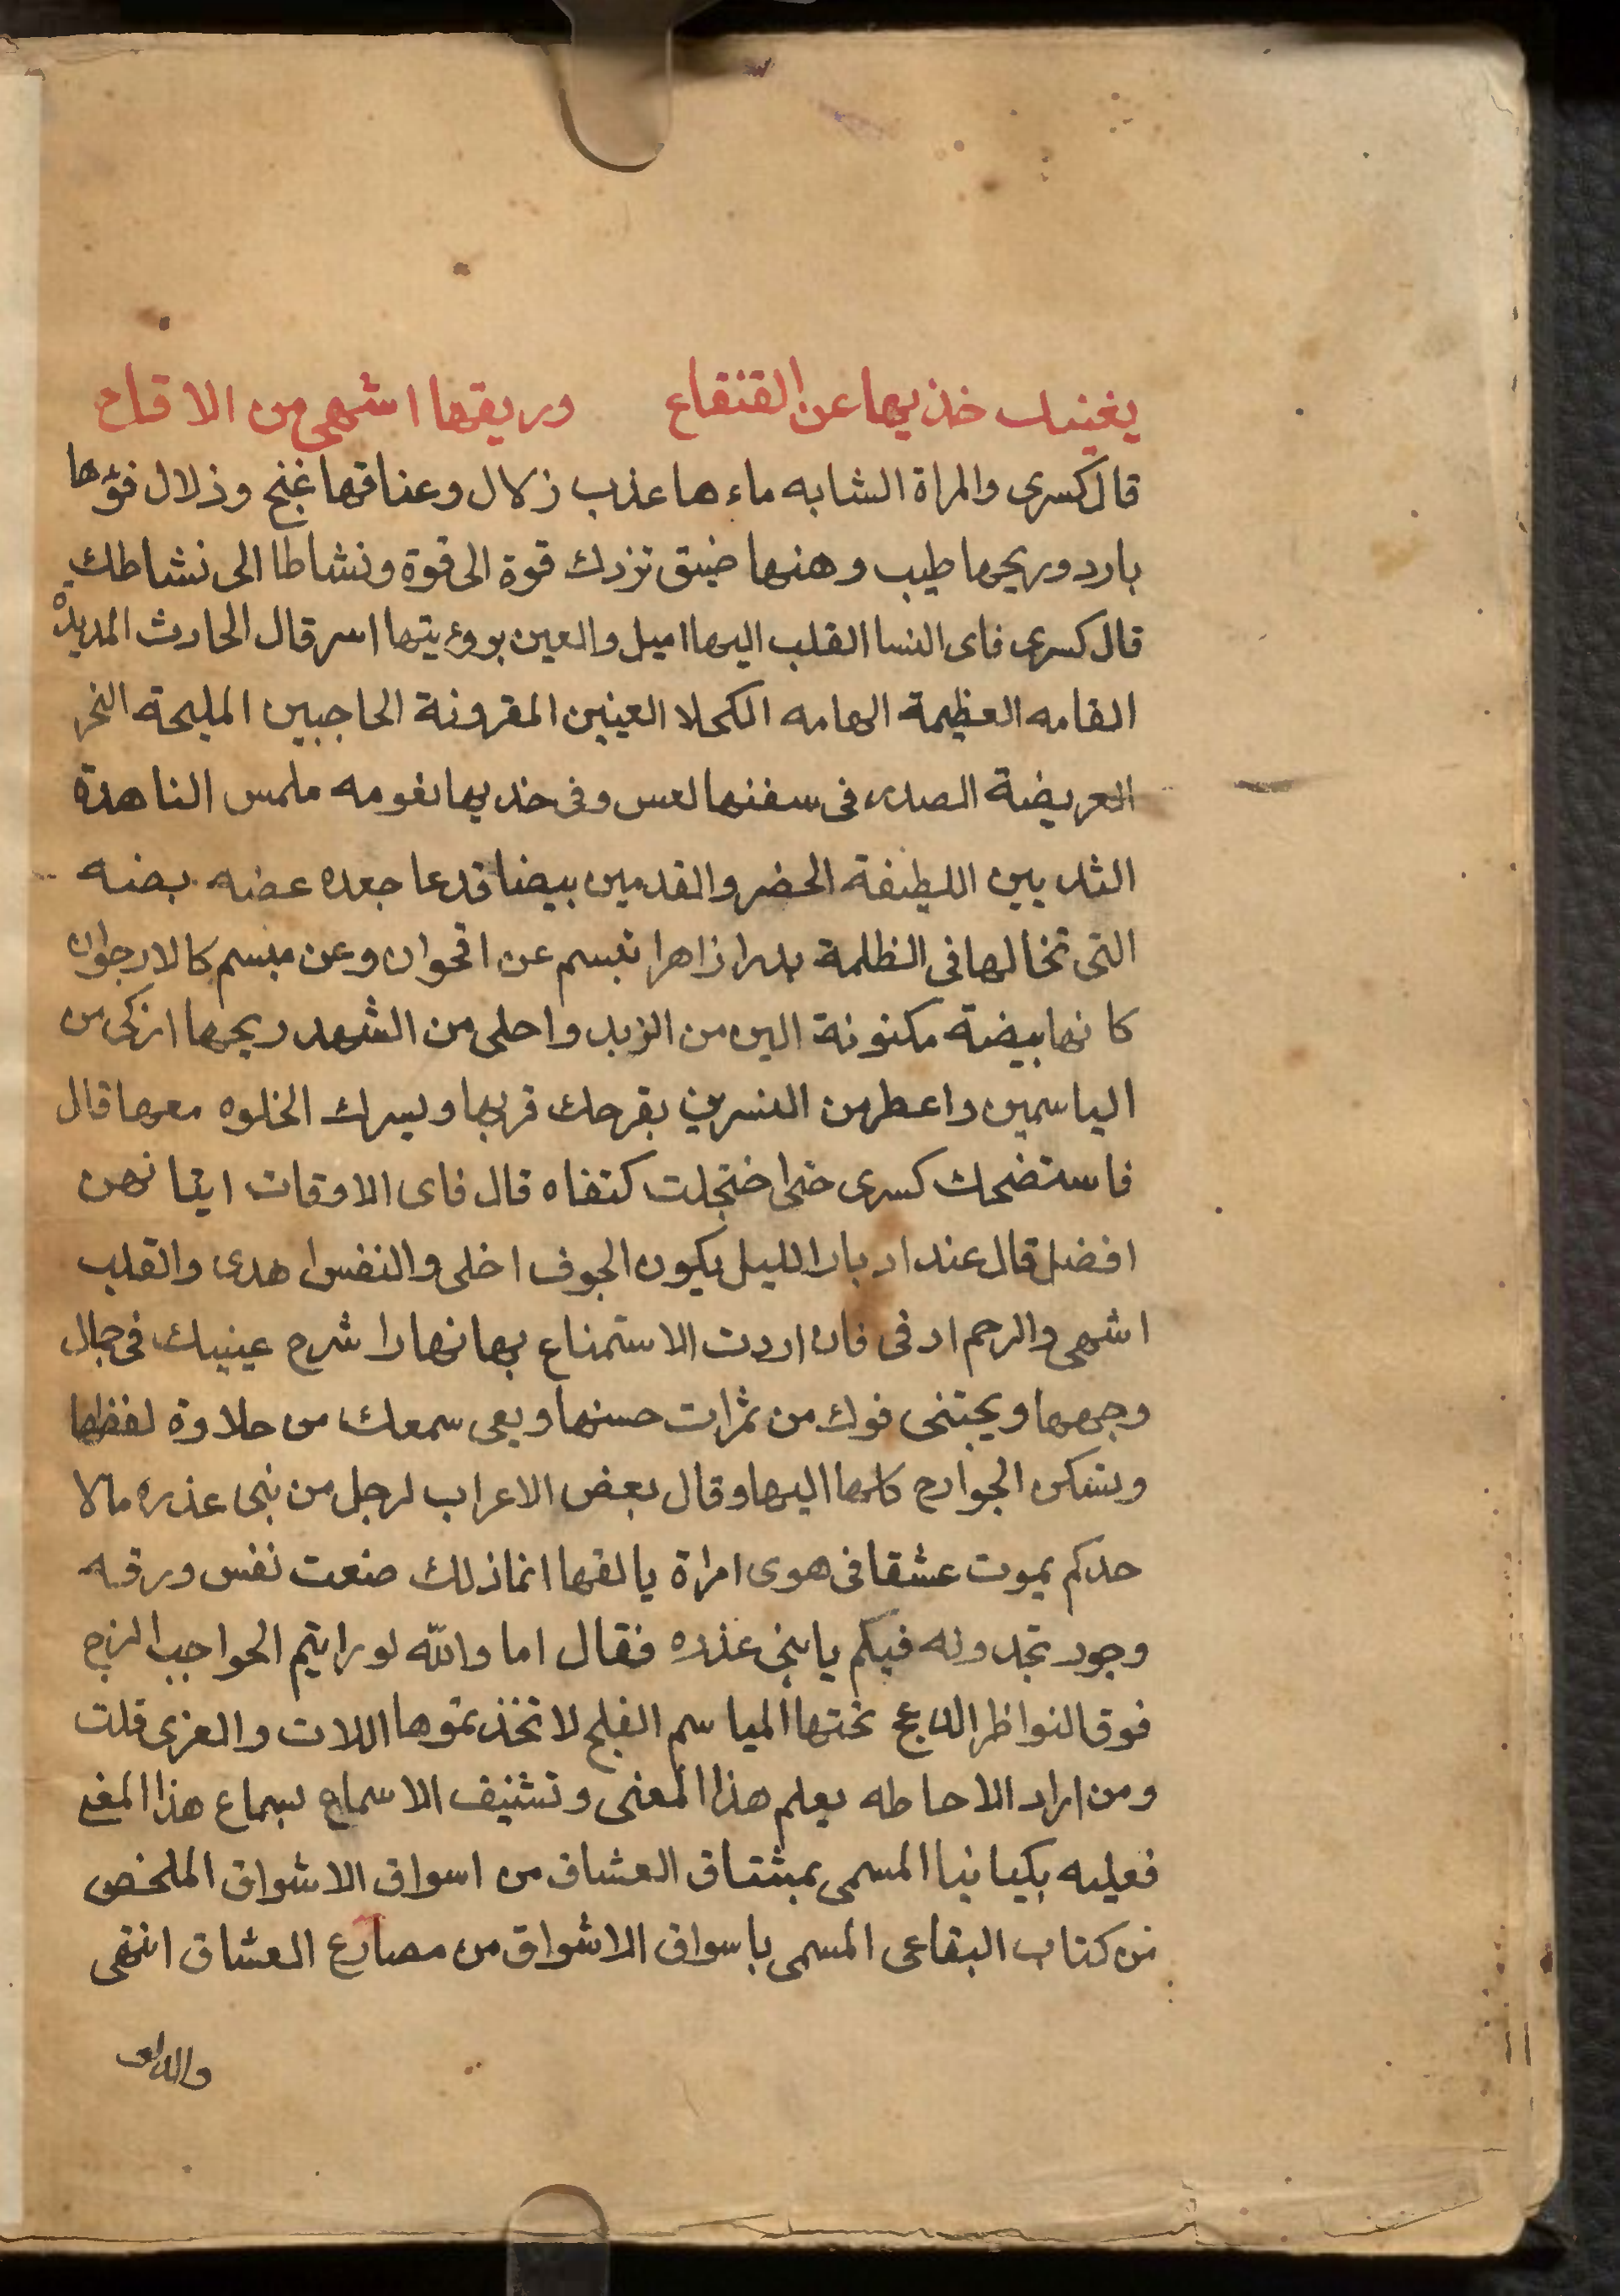 يغنيك خذيها عن القنقاع وريقها اشهى من الاقداح
قال كسرى والمراة الشابه ماءها عذب زلال وعناقها غنج وذلال فوها
بارد وريحها طيب وهنها ضيق تزدك قوة الى قوة ونشاطا الى نشاطك
قال كسرى فاى النسا القلب اليها اميل والعين برؤيتها اسر قال الحارث المديدة
القامه العظيمة الهامه الكحلا العينين المقرونة الحاجبين المليحة النحر
العريضة الصدر فى سفنها لعس وفى خديها نعومه ملمس الناهدة
الثديين اللطيفة الخضر والقدمين بيضا قدعا جعده عضه بضه
التى تخالها فى الظلمة بدرا زاهرا تبسم عن اقحوان وعن مبسم كالارجوان
كانها بيضة مكنونة الين من الزبد واحلى من الشهد ريحها ازكى من
الياسمين واعطر من النسرين يفرحك قربها ويسرك الخلوه معها قال
فاستضحك كسرى حتى اختجلت كتفاه قال فاى الاوقات ايتانهن
افضل قال عند ادبار الليل يكون الجوف اخلى والنفس اهدى والقلب
اشهى والرحم ادفى فان اردت الاستمتاع بها نهارا شرح عينيك فى جمال
وجهها ويجتنى فوك من ثمرات حسنها ويعى سمعك من حلاوة لفظها
وتسكن الجوارح كلها اليها وقال بعض الاعراب لرجل من بنى عذره مالا
حدكم يموت عشقا فى هوى امراة يالفها انما ذلك ضعت نفس ورقه
وجود تجدونه فيكم يا بنى عذره فقال اما والله لو رايتم الحواجب الزج
فوق النواظر الدعج تحتها المياسم الفلج لاتخذتموها اللات والعزى قلت
ومن اراد الاحاطه بعلم هذا المعنى وتشنيف الاسماع بسماع هذا المغنى
فعليه بكتابنا المسمى بمشتاق العشاق من اسواق الاشواق الملخص
من كتاب البقاعى المسمى باسواق الاشواق من مصارع العشاق انتهى
والله